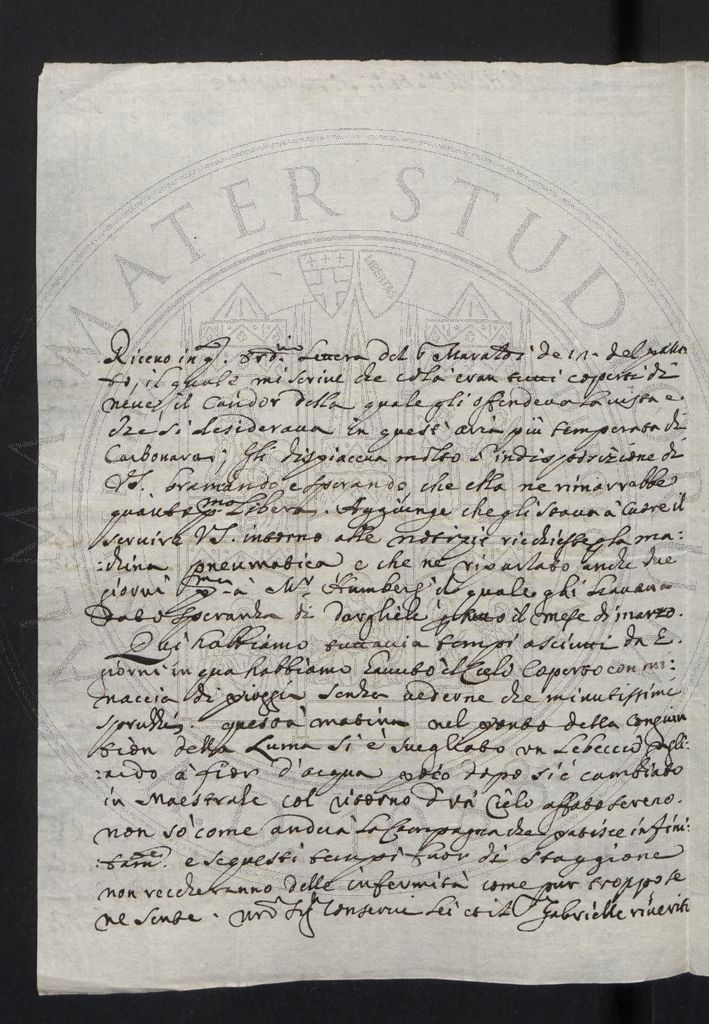 ALMA MATER STUDIORUM
LIBERTAS
Ricevo in q. ord. Lettera del Maraldi de 12 del
il quale mi scrive che colà eran tutti coperti di
neve, il Candor della quale gli offendeva la vista e
che si desiderava in quest'aria più temperata di
Carbonara; Gli dispiaceva molto l'indisposizione di
VS. bramando e sperando che ella ne rimarrebbe
quanto p.mo Libera. Aggiunge che gli stava à Cuore il
servire VS. intorno alle notizie richieste la ma-
:china pneumatica e che ne riparlato anche due
giorni p.ma à Mr. Humberg il quale gli
dato speranza di darghele il mese di marzo.
Qui habbiamo tuttavia tempi asciutti da 8.
giorni in qua habbiamo havuto il Cielo Coperto con mi:
naccia di pioggia senza vederne che minutissimi
spruzzi. questa matina nel punto della Congiun
tion della Luna si è svegliato un Lebeccio
à fior d'acqua poco dopo si è cambiato
in Maestrale col ritorno d'un Cielo affato sereno.
non sò come andrà la Campagna che patisce infini:
:tam.e e se questi tempi fuor di staggione
non recheranno delle infermità come pur troppo se
ne sente. Conservi Lei et il Gabrielle riveriti